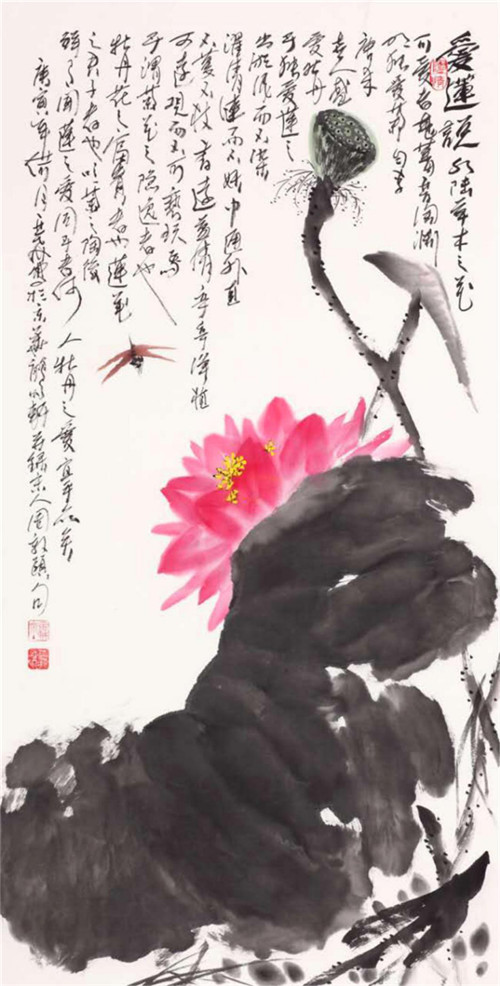 愛蓮説 水陸草木之花
可愛者甚蕃晋陶渊
明独愛菊自李
唐来
世人盛
愛牡丹
予独愛蓮之
出淤泥而不染
濯清漣而不妖中通外直
不蔓不枝香遠益清亭亭净植
可遠观而不可褻玩焉
予謂菊花之隐逸者也
牡丹花之富貴者也蓮花
之君子者也噫菊之陶後
鲜有闻蓮之愛同予者何人牡丹之愛宜乎众矣
庚寅年於京華并録宋人周敦頤句